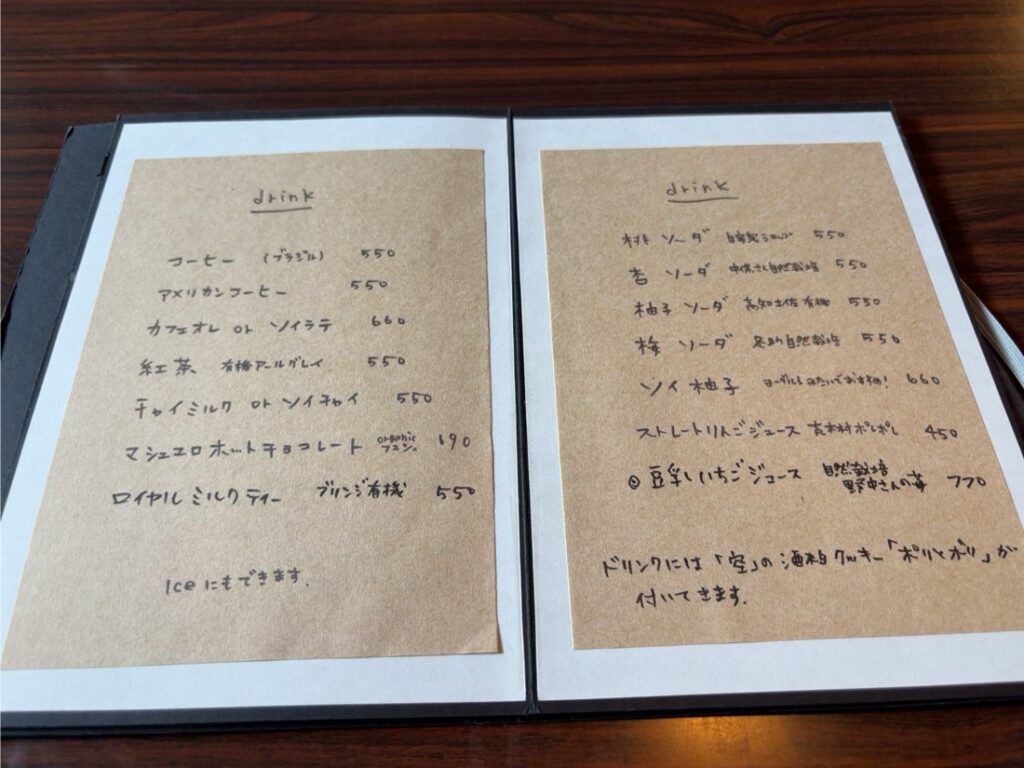 drink
コーヒー (ブラジル) 550
アメリカンコーヒー 550
カフェオレ or ソイラテ 660
紅茶 有機アールグレイ 550
チャイミルク or ソイチャイ 550
マシュマロホットチョコレート organic 690
ロイヤルミルクティー プリンジ有機 550
Iceにもできます.
drink
桃 ソーダ 自家製シロップ 550
杏 ソーダ 自然栽培 550
柚子 ソーダ 高知土佐有機 550
梅 ソーダ 自然栽培 550
ソイ柚子 ヨーグルトみたいでおすすめ! 660
ストレートりんごジュース 450
◎ 豆乳いちごジュース 自然栽培 野中さんの苺 770
ドリンクには「空」の酒粕クッキー「ポリとポリ」が
付いてきます.